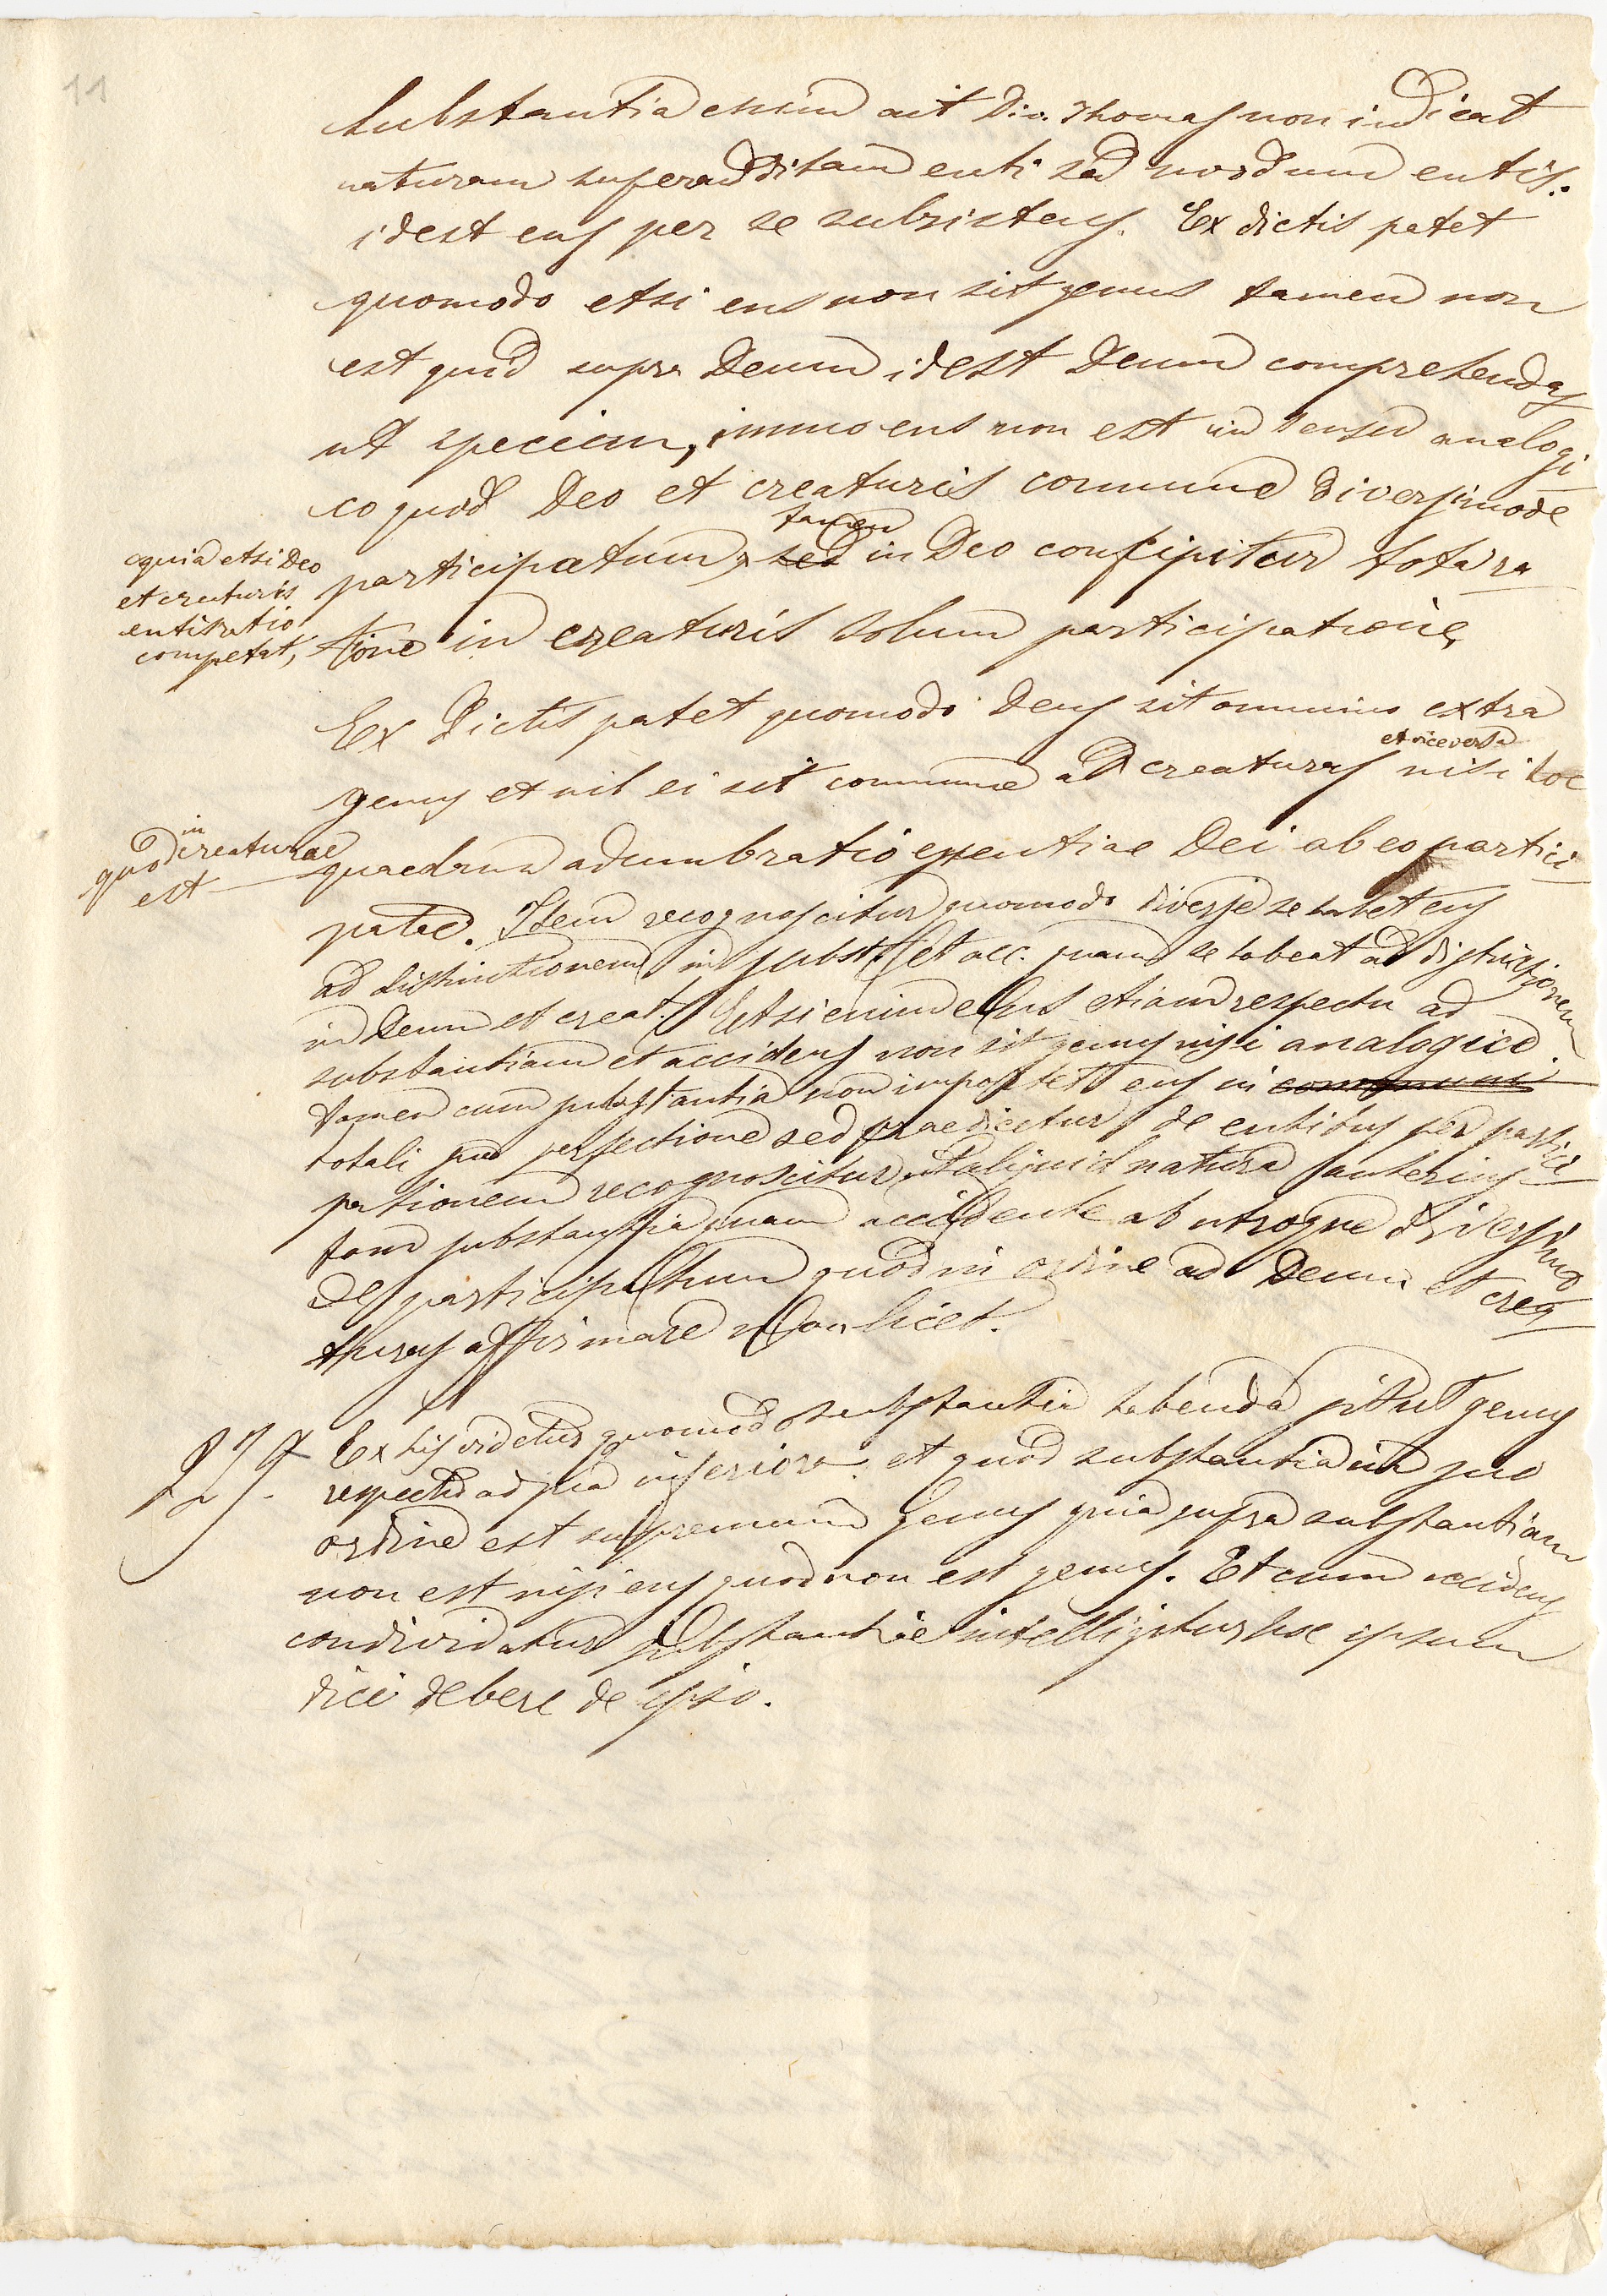 11
Substantia enim ait Div. Thomas non indicat
naturam superadditam enti sed modum entis:
idest ens per se subsistens. Ex dictis patet
quomodo etsi ens non sit genus tamen non
est quid supra Deum idest Deum comprehendas
ut speciem, immo ens non est in sensu analogi
co quod Deo et creaturis commune diversimode
tamen
participatum, sed in Deo concipitur tota ra
quia etsi Deo
et creaturis
entis ratio
competat,
tione in creaturis solum participatione,
Ex Dictis patet quomodo Deus sit omnino extra
et vice versa
genus et nil ei sit commune ad creaturas nisi hoc
in
quod creaturae
est
quaedam adumbratio essentiae Dei ab eo partici
patae. Item recognoscitur quomodo diverse se habet ens
ad distinctionem in subst. et acc. quam se habeat ad distinctionem
in Deum et creat. Etsi enim ens etiam respectu ad
substantiam et accidens non sit genus nisi analogice
tamen cum substantia non importet ens in communi
totali sua perfectione sed praedicetur de entibus per partici
pationem recognoscitur ut aliquid natura anterius
tam substantia quam accidente ab utroque diversimo
de participatum quod in ordine ad Deum et crea
turas affirmare non licet.
Ex his videtur quomodo substantia habenda sit ut genus
respectu ad sua inferiora et quod substantia in suo
ordine est supremum genus quia supra substantiam
non est nisi ens quod non est genus. Et cum accidens
condividatur substantiae intelligitur hoc ipsum
dici debere de ipso.